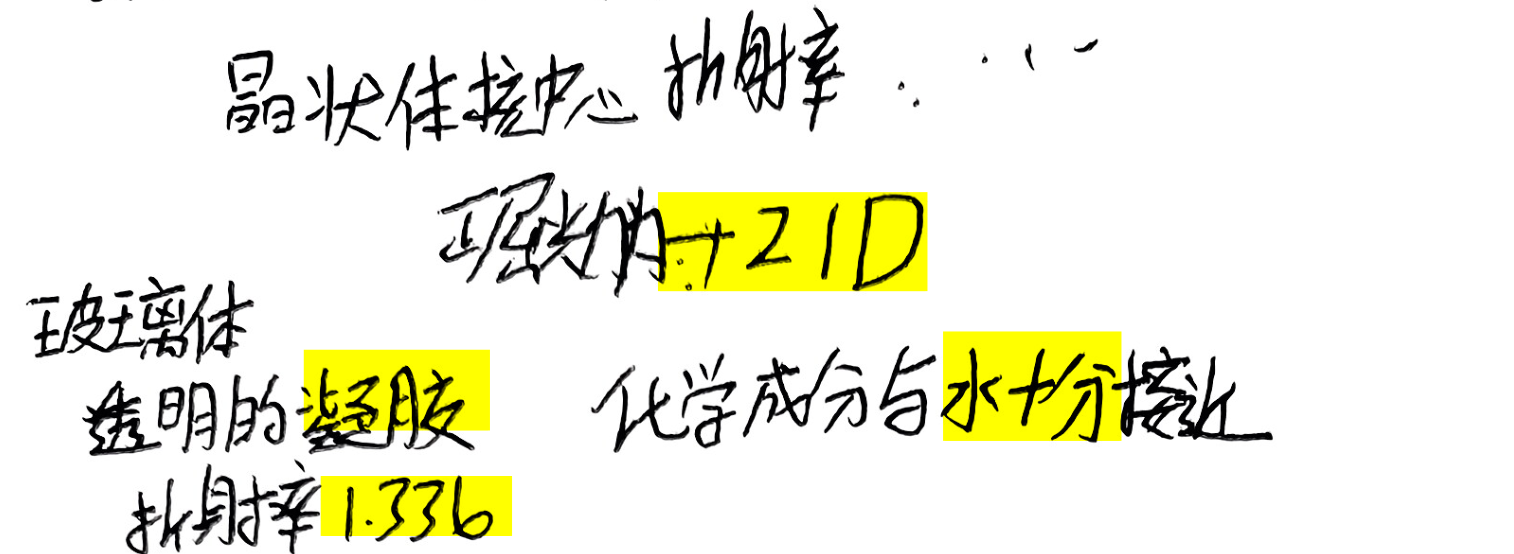 晶状体核中心 折射率 ......
屈光力约: +21D
玻璃体
透明的凝胶 化学成分与水十分接近
折射率 1.336